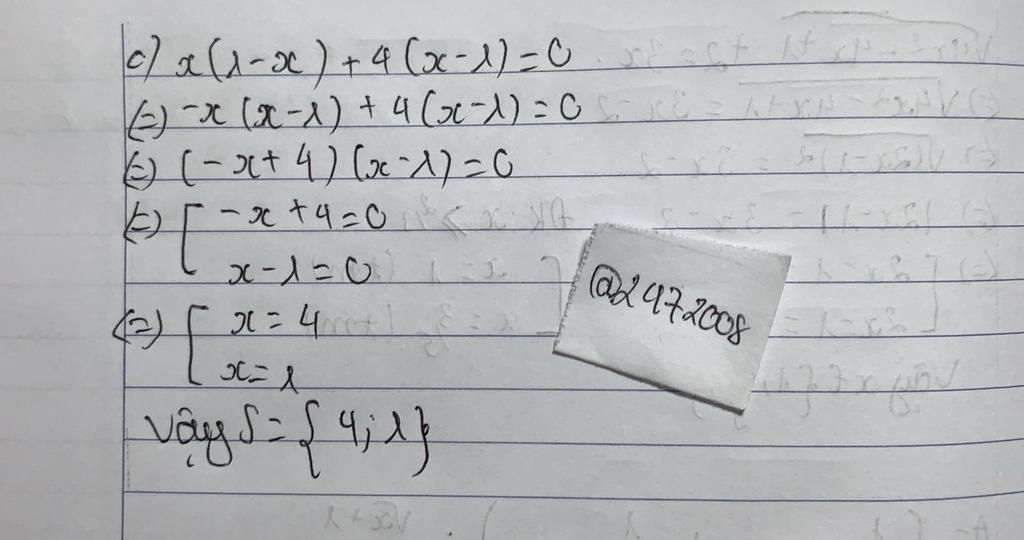 c) x(1-x) + 4(x-1) = 0
(=) -x(x-1) + 4(x-1) = 0
(=) (-x+4)(x-1) = 0
(=) [ -x+4=0
x-1=0
(=) [ x = 4
x = 1
Vậy S = {4; 1}
@2472008